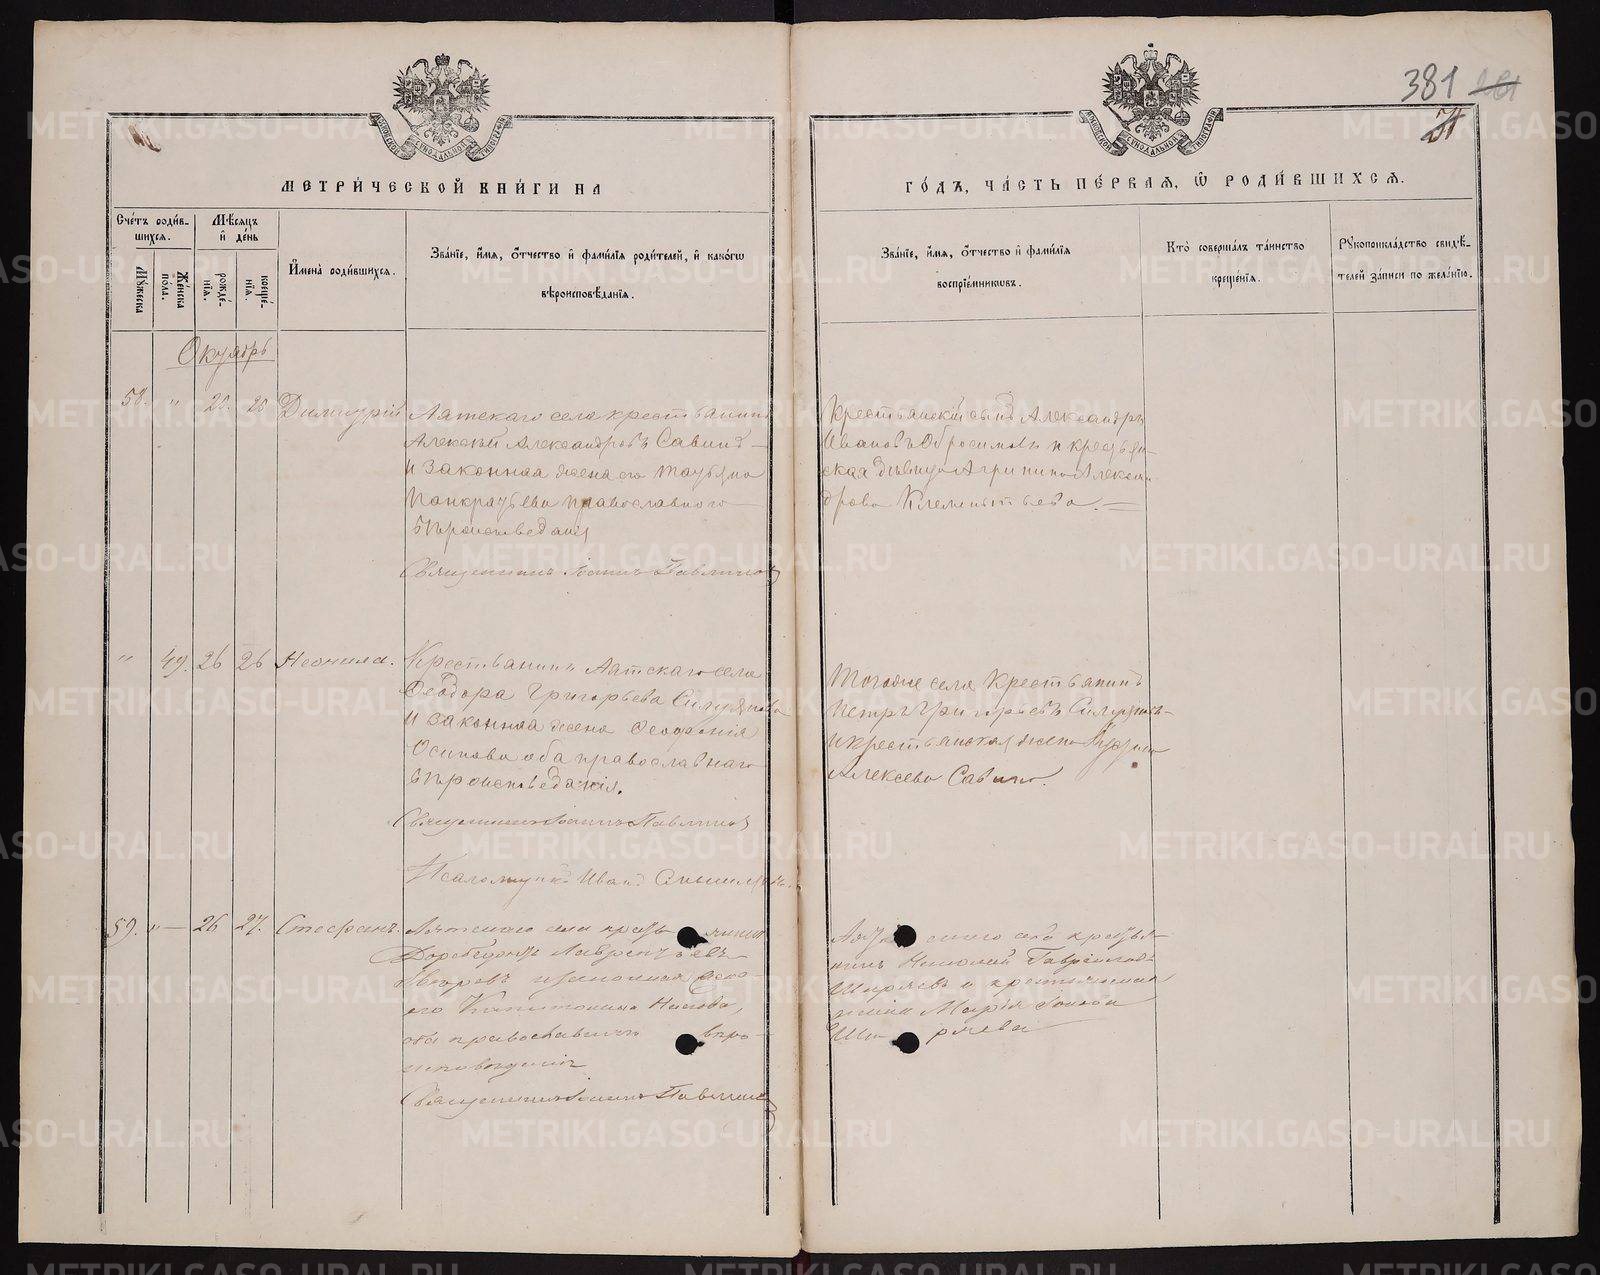 381
МЕТРИ́ЧЕСКОЙ КНИ́ГИ НА
ГО́ДЪ, ЧА́СТЬ ПЕ́РВАЯ, Ѡ РОДИ́ВШИХСЯ.
Сче́тъ роди́в-
шихся.
Му́жеска
Же́нска
по́ла.
Мѣ́сяцъ
и де́нь
рожде́-
нія.
креще́-
нія.
Имена̀ роди́вшихся.
Зва́ніе, и́мя, о́тчество и фами́лія роди́телей, и како́гѡ
вѣроисповѣ́данія.
Зва́ніе, и́мя, о́тчество и фами́лія
воспріе́мниковъ.
Кто̀ соверша́лъ та́инство
креще́нія.
Рукоприкла́дство свидѣ́-
телей за́писи по жела́нію.
Октябрь
58. " 25. 25 Димитрій
Аятскаго села крестьянинъ
Алексѣй Александровъ Савинъ
и законная жена его Татьяна
Панкратьева православнаго
вѣроисповѣданія
Священникъ Іоаннъ
Крестьянскій сынъ Александръ
Ивановъ Обросимовъ и крестьян-
ская дѣвица Агрипина Алексан-
дрова Клементьева.
" 49. 26 26 Неонила.
Крестьянинъ Аятскаго села
Ѳеодора Григорьева Силуянова
и законная жена Ѳеофанія
Осипова оба православнаго
вѣроисповѣданія.
Священникъ Іоаннъ
Псаломщикъ Иванъ
Тогоже села Крестьянинъ
Петръ Григорьевъ Силуяновъ
и крестьянская жена
Алексѣева Савина.
59. " 26 27. Стефанъ.
Аятскаго села
Лаврентьевъ
и законная жена
его Капитолина
оба православнаго вѣро-
исповѣданія
Священникъ Іоаннъ
села крестья-
нинъ Николай Гавриловъ
Ширяевъ и крестьянская
Марія
Ширяева
METRIKI.GASO-URAL.RU